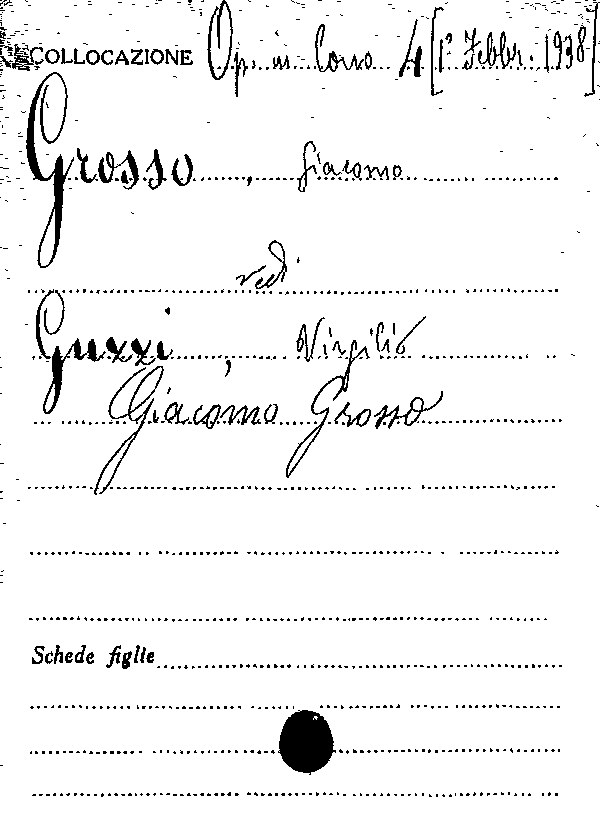 COLLOCAZIONE Op. in Corso 4 [1° Febbr. 1938]
Grosso, Giacomo
vedi
Guzzi, Virgilio
Giacomo Grosso
Schede figlie